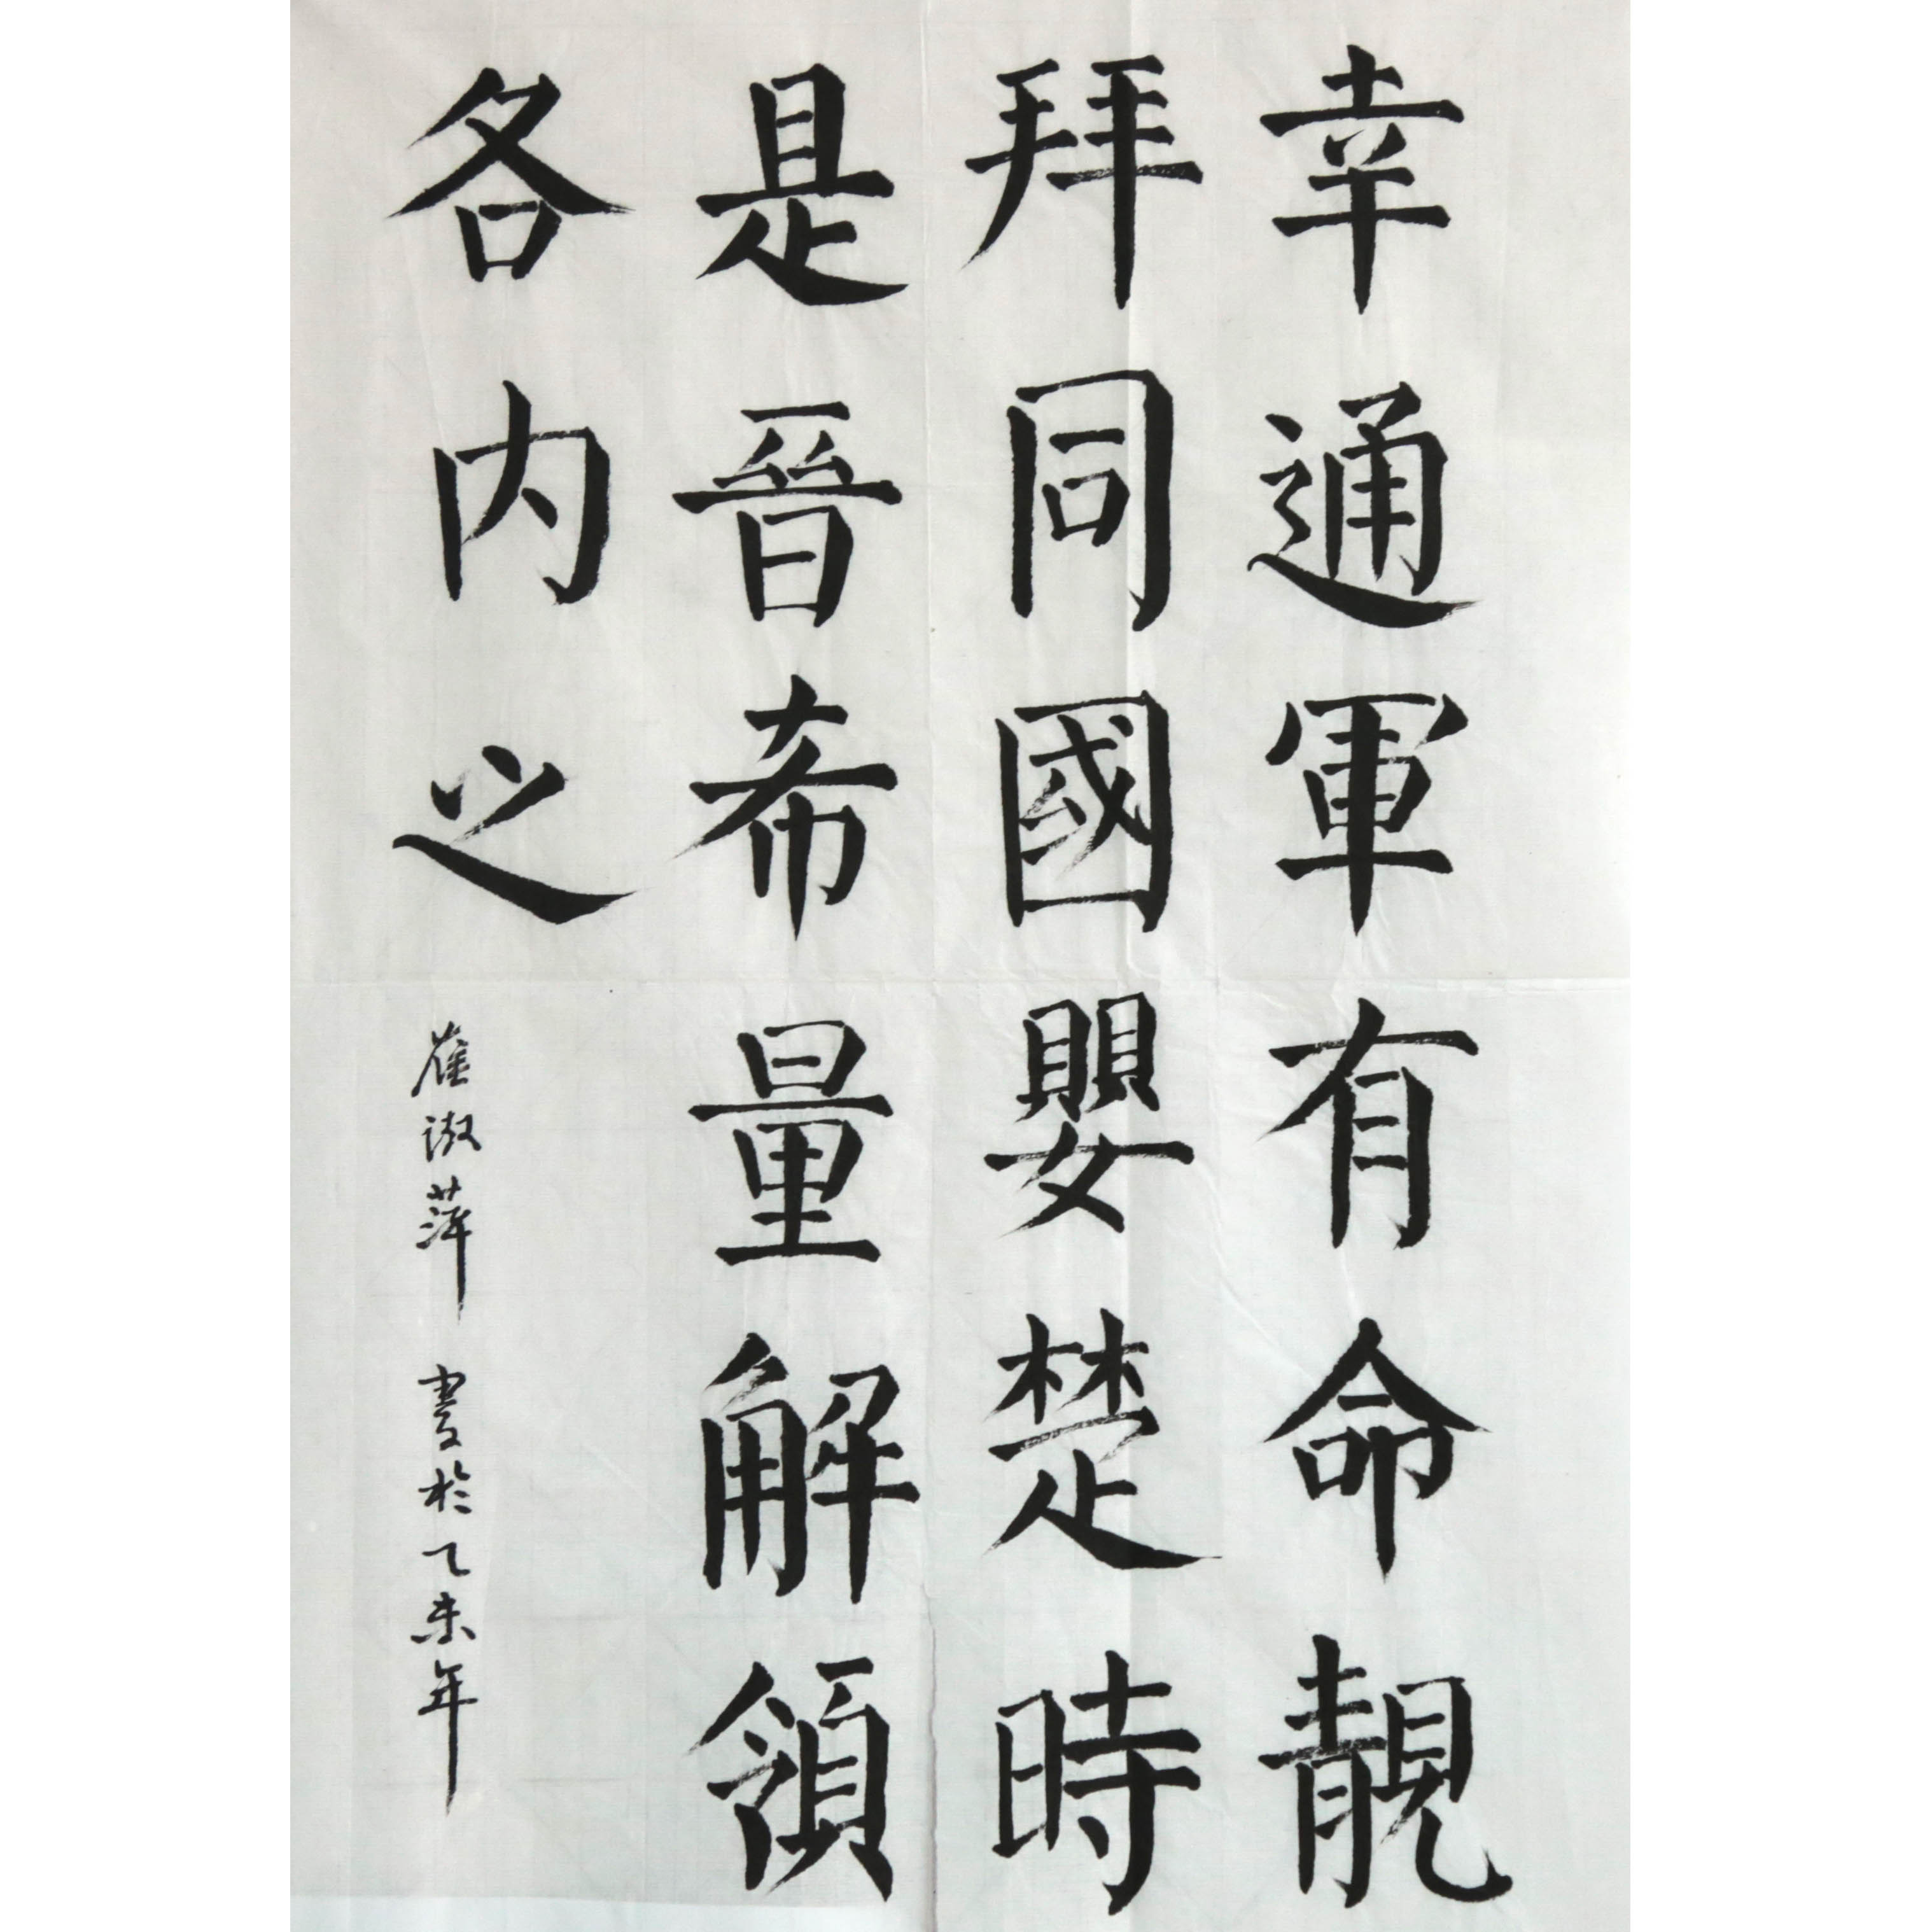 幸通軍有命靚
拜同國嬰楚時
是晉希量解領
各内之
崔淑萍 書於乙未年